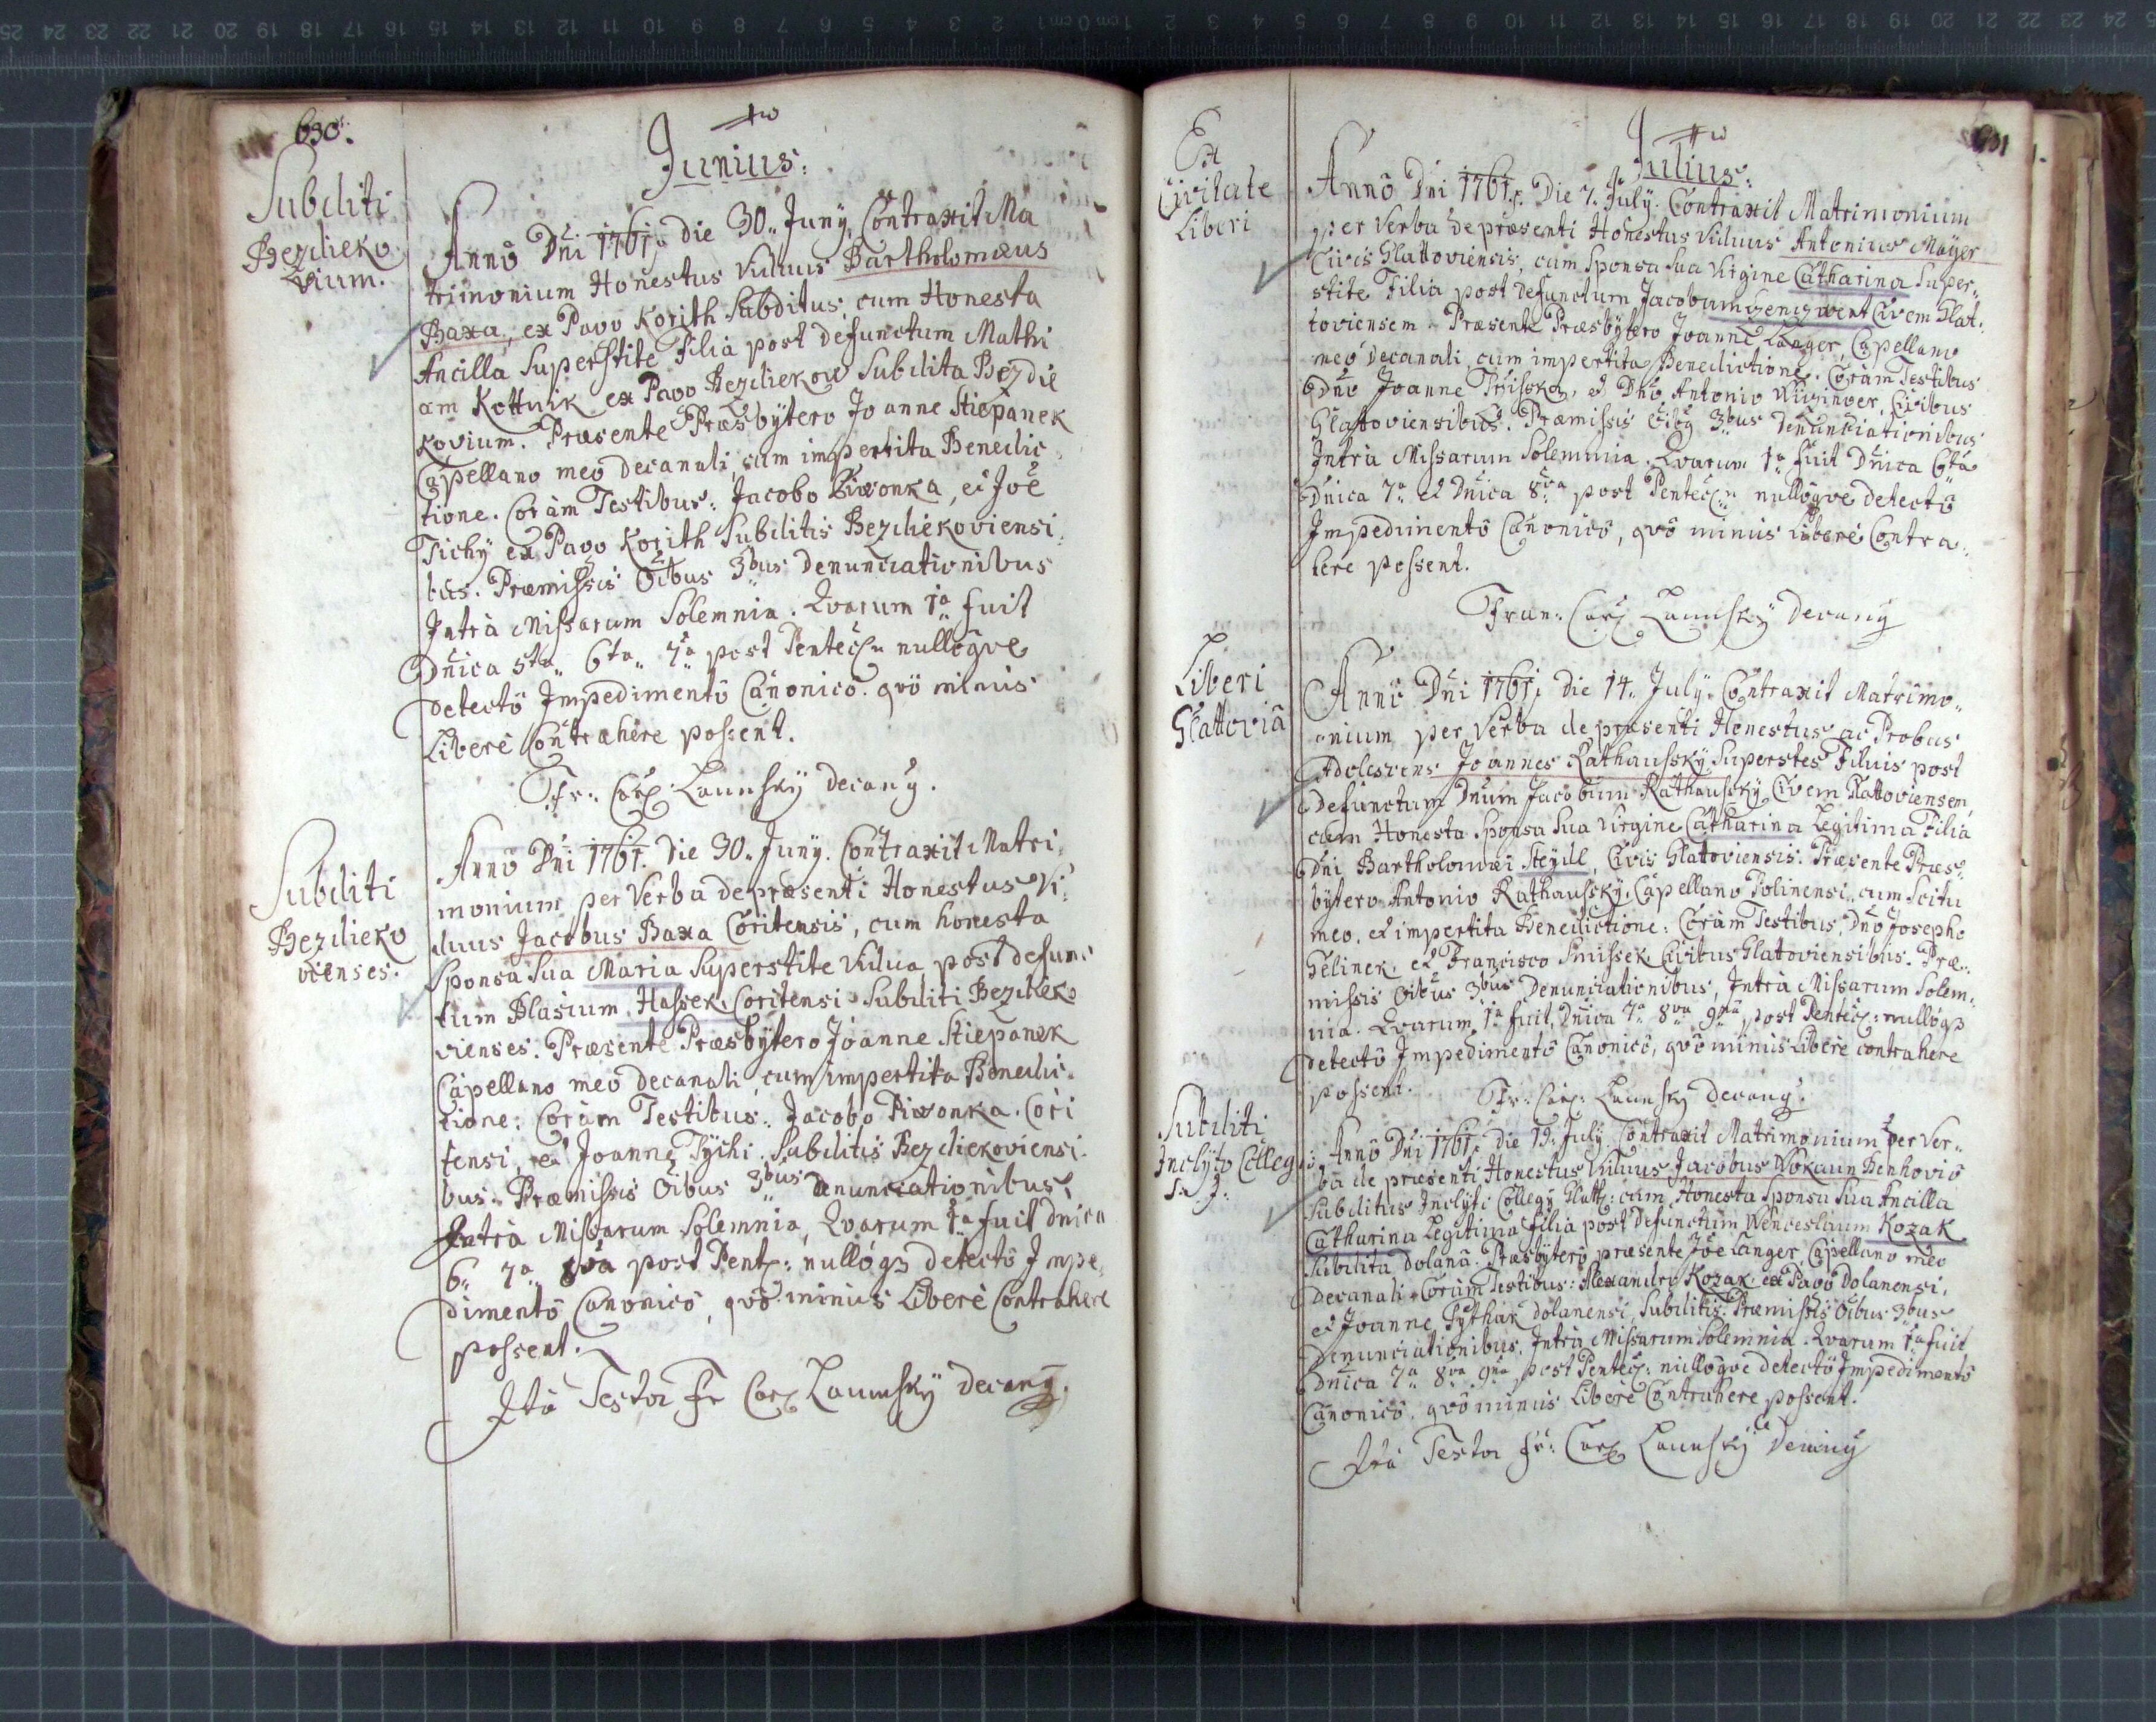 630.
Junius:
Subditi
Bezdieko
vium.
Anno Dni 1761, die 30. Juny. Contraxit Ma
trimonium Honestus Viduus Bartholomæus
Baxa, ex Pago Korith Subditus, cum Honesta
Ancilla Superstite Filia post defunctum Mathi
am Kottnik ex Pago Bezdiekow Subdita Bezdie
kovium. Præsente Præsbytero Joanne Stiepanek
Capellano meo decanali, cum impertita Benedic
tione. Coram Testibus: Jacobo Piwonka, et Joe
Tichy ex Pago Korith Subditis Bezdiekoviensi
bus. Præmissis Oibus 3bus denunciationibus
Intra Missarum Solemnia. Qvarum 1a fuit
Dnica 5ta 6ta 7a post Pentec: nullôqve
detectô Impedimentô Canonicô. qvô minus
Liberè Contrahere possent.
Fr: Car: Launsky decany.
Subditi
Bezdieko
vienses.
Anno Dni 1761. Die 30. Juny. Contraxit Matri
monium per Verba de præsenti Honestus Vi
duus Jacobus Baxa Coritensis, cum honesta
Sponsa Sua Maria Superstite Vidua post defunc
tum Blasium Hassek Coritensi Subditi Bezdieko
vienses. Præsente Præsbytero Joanne Stiepanek
Capellano meo decanali cum impertita Benedic
tione: Coram Testibus. Jacobo Piwonka. Cori
tensi, et Joanne Tychi. Subditis Bezdiekoviensi
bus. Præmissis Oibus 3bus denunciationibus,
Intra Missarum Solemnia, Qvarum 1a fuit Dnica
6. 7a 8va post Pent: nullôq3 detectô Impe
dimentô Canonicô, qvô minus Liberè Contrahere
possent.
Ita Testor Fr Car: Launsky decany.
631
Julius:
Ex
Civitate
Liberi
Anno Dni 1761. Die 7. July. Contraxit Matrimonium
per Verba de præsenti Honestus Viduus Antonius Mayer
Civis Glattoviensis, cum Sponsa Sua Virgine Catharina Super
stite Filia post defunctum Jacobum Civem Glat
toviensem. Præsente Præsbytero Joanne Langer, Capellano
meo decanali, cum impertita Benedictione. Coram Testibus
Dno Joanne et Dno Antonio Civibus
Glattoviensibus. Præmissis Oiby 3bus Denunciationibus
Intra Missarum Solemnia. Qvarum 1a fuit Dnica 6ta
Dnica 7a et Dnica 8va post Pentec: nullôqve detectô
Impedimentô Canonicô, qvô minus liberè Contra
here possent.
Fran: Car: Launsky Decany
Liberi
Glattoviâ
Anno Dni 1761, die 14. July. Contraxit Matrimo
nium per Verba de præsenti Honestus ac Probus
Adolescens Joannes Rathausky Superstes Filius post
defunctum Dnum Jacobum Rathausky Civem Glattoviensem,
cum Honesta Sponsa Sua Virgine Catharina Legitima Filia
Dni Bartholomæi Steydl, Civis Glatoviensis. Præsente Præs
bytero Antonio Rathausky, Capellano Polinensi, cum Scitu
meo, et impertita Benedictione: Coram Testibus, Dno Josepho
Gelinek, et Francisco Smissek Civibus Glatoviensibus. Præ
missis Oibus 3bus Denunciationibus, Intra Missarum Solem
nia. Qvarum 1a fuit, Dnica 7a 8va 9na post Pentec: nullôq3
detectô Impedimentô Canonicô, qvô minus Liberè contrahere
possent. Fr: Car: Launsky decany.
Subditi
Inclyto Colleg
S: J:
Anno Dni 1761. die 19. July. Contraxit Matrimonium per Ver
ba de præsenti Honestus Viduus Jacobus Wokaun Benhovio
Subditus Inclyti Collegy Glatt: cum Honesta Sponsa Sua Ancilla
Catharina Legitima Filia post defunctum Wenceslaum Kozak
Subdita Dolanâ. Præsbytero præsente Joe Langer, Capellano meo
decanali. Coram Testibus: Alexandro Kozak ex Pago Dolanensi,
et Joanne Pythar dolanensi, Subditis. Præmissis Oibus 3bus
Denunciationibus, Intra Missarum Solemnia. Qvarum 1a fuit
Dnica 7a 8va 9na post Pentec: nullôqve detectô Impedimentô
Canonicô, qvô minus Liberè Contrahere possent.
Ita Testor Fr: Car: Launsky Decany